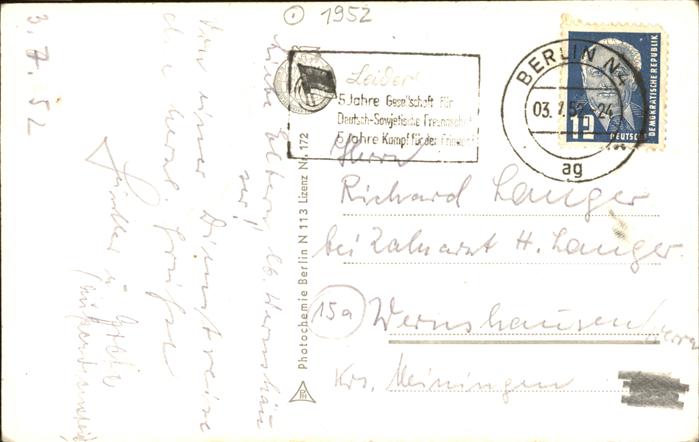 1952
3.7.52
Liebe Eltern
Von einer Dienstreise
die herzl. Grüße
Leider
5 Jahre Gesellschaft für
Deutsch-Sowjetische Freundschaft
5 Jahre Kampf für den Frieden
BERLIN N4
03.7.52-24
ag
12
DEUTSCHE
DEMOKRATISCHE REPUBLIK
Photochemie Berlin N 113 Lizenz Nr. 172
Herrn
Richard Langer
bei Zahnarzt H. Langer
15a
Wernshausen/Werra
Krs. Meiningen